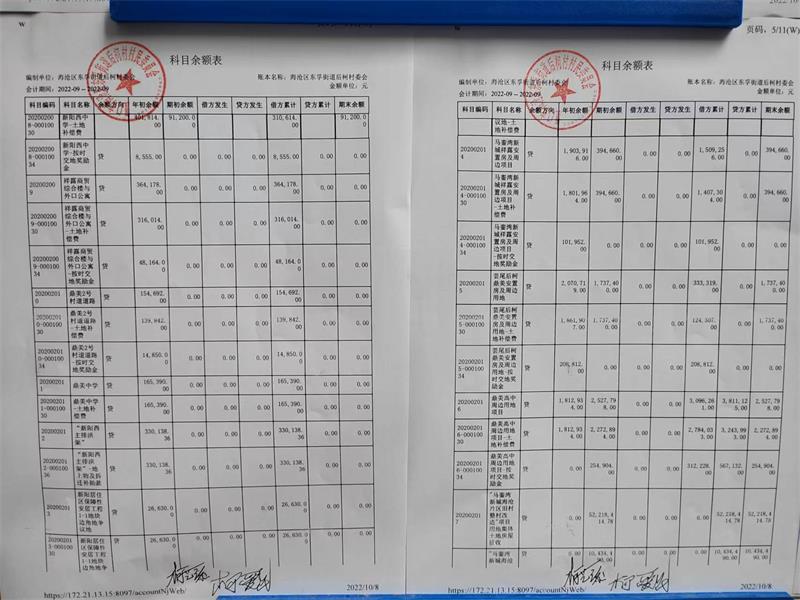 科目余额表
编制单位：海沧区东孚街道后柯村委会
账本名称：海沧区东孚街道后柯村委会
会计期间：2022-09---2022-09
金额单位：元
科目编码 科目名称 余额方向 年初余额 期初余额 借方发生 贷方发生 借方累计 贷方累计 期末余额
20200208-00010030 新阳西中学-土地补偿费 91,200.00 0.00 0.00 310,614.00 0.00 91,200.00
20200208-00010034 新阳西中学-按时交地奖励金 贷 8,555.00 0.00 0.00 0.00 8,555.00 0.00 0.00
20200209 祥露商贸综合楼与外口公寓 贷 364,178.00 0.00 0.00 0.00 364,178.00 0.00 0.00
20200209-00010030 祥露商贸综合楼与外口公寓-土地补偿费 贷 316,014.00 0.00 0.00 0.00 316,014.00 0.00 0.00
20200209-00010034 祥露商贸综合楼与外口公寓-按时交地奖励金 贷 48,164.00 0.00 0.00 0.00 48,164.00 0.00 0.00
20200210 鼎美2号村道道路 贷 154,692.00 0.00 0.00 0.00 154,692.00 0.00 0.00
20200210-00010030 鼎美2号村道道路-土地补偿费 贷 139,842.00 0.00 0.00 0.00 139,842.00 0.00 0.00
20200210-00010034 鼎美2号村道道路-按时交地奖励金 贷 14,850.00 0.00 0.00 0.00 14,850.00 0.00 0.00
20200211 鼎美中学 贷 165,390.00 0.00 0.00 0.00 165,390.00 0.00 0.00
20200211-00010030 鼎美中学-土地补偿费 贷 165,390.00 0.00 0.00 0.00 165,390.00 0.00 0.00
20200212 “新阳西主排洪渠” 贷 330,138.36 0.00 0.00 0.00 330,138.36 0.00 0.00
20200212-00010036 “新阳西主排洪渠”-地上物及拆迁补助款 贷 330,138.36 0.00 0.00 0.00 330,138.36 0.00 0.00
20200213 新阳居住区保障性安居工程1-1地块边角地争议地 贷 26,630.00 0.00 0.00 0.00 26,630.00 0.00 0.00
20200213-00010030 新阳居住区保障性安居工程1-1地块边角地争 贷 26,630.00 0.00 0.00 0.00 26,630.00 0.00 0.00
https://172.21.13.15:8097/accountNjWeb/
2022/10/8
页码：5/11(W)
科目余额表
编制单位：海沧区东孚街道后柯村委会
账本名称：海沧区东孚街道后柯村委会
会计期间：2022-09---2022-09
金额单位：元
科目编码 科目名称 余额方向 年初余额 期初余额 借方发生 贷方发生 借方累计 贷方累计 期末余额
议地-土地补偿费
20200214 马銮湾新城祥露安置房及周边项目 贷 1,903,916.00 394,660.00 0.00 0.00 1,509,256.00 0.00 394,660.00
20200214-00010030 马銮湾新城祥露安置房及周边项目-土地补偿费 贷 1,801,964.00 394,660.00 0.00 0.00 1,407,304.00 0.00 394,660.00
20200214-00010034 马銮湾新城祥露安置房及周边项目-按时交地奖励金 贷 101,952.00 0.00 0.00 0.00 101,952.00 0.00 0.00
20200215 芸尾后柯鼎美安置房及周边用地 贷 2,070,719.00 1,737,400.00 0.00 0.00 333,319.00 0.00 1,737,400.00
20200215-00010030 芸尾后柯鼎美安置房及周边用地-土地补偿费 贷 1,861,907.00 1,737,400.00 0.00 0.00 124,507.00 0.00 1,737,400.00
20200215-00010034 芸尾后柯鼎美安置房及周边用地-按时交地奖励金 贷 208,812.00 0.00 0.00 0.00 208,812.00 0.00 0.00
20200216 鼎美高中周边用地项目 贷 1,812,934.00 2,527,798.00 0.00 0.00 3,096,261.00 3,811,125.00 2,527,798.00
20200216-00010030 鼎美高中周边用地项目-土地补偿费 贷 1,812,934.00 2,272,894.00 0.00 0.00 2,784,033.00 3,243,993.00 2,272,894.00
20200216-00010034 鼎美高中周边用地项目-按时交地奖励金 贷 0.00 254,904.00 0.00 0.00 312,228.00 567,132.00 254,904.00
20200217 “马銮湾新城海沧片区旧村整村改造”项目用地集体土地房屋征收 贷 0.00 52,218,414.78 0.00 0.00 0.00 52,218,414.78 52,218,414.78
“马銮湾新城海沧 0.00 10,434,490.00 0.00 0.00 0.00 10,434,490.00 10,434,490.00
https://172.21.13.15:8097/accountNjWeb/
2022/10/8